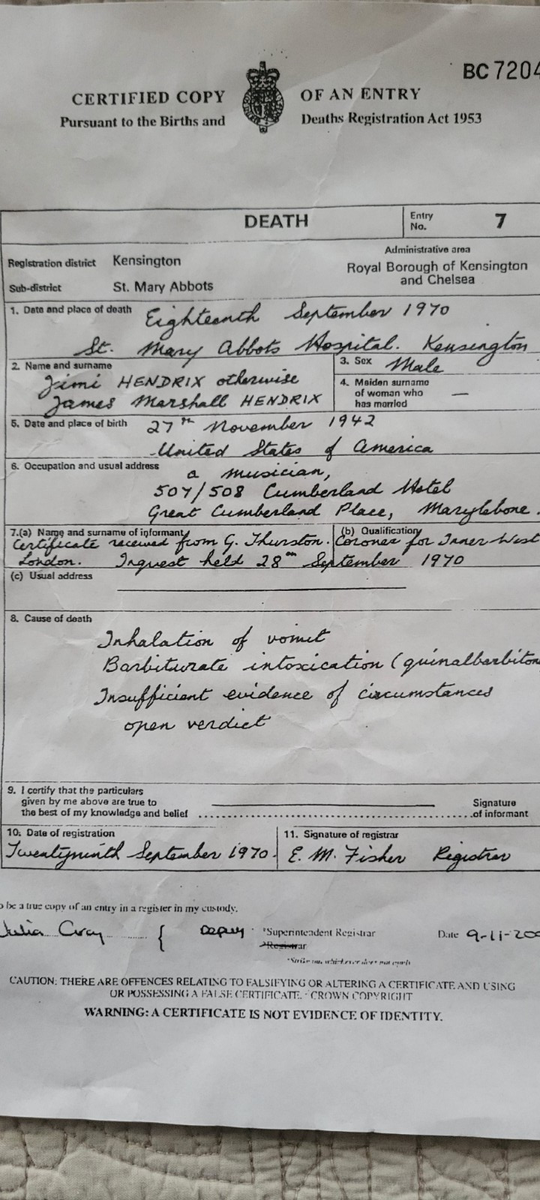 BC 7204
CERTIFIED COPY OF AN ENTRY
Pursuant to the Births and Deaths Registration Act 1953
DEATH
Entry No. 7
Registration district Kensington
Sub-district St. Mary Abbots
Administrative area
Royal Borough of Kensington
and Chelsea
1. Date and place of death Eighteenth September 1970
St. Mary Abbots Hospital. Kensington
2. Name and surname
Jimi HENDRIX otherwise
James Marshall HENDRIX
3. Sex Male
4. Maiden surname
of woman who
has married —
5. Date and place of birth 27th November 1942
United States of America
6. Occupation and usual address a musician,
507/508 Cumberland Hotel
Great Cumberland Place, Marylebone.
7.(a) Name and surname of informant
(b) Qualification
Certificate received from G. Thurston. Coroner for Inner West
London. Inquest held 28th September 1970
(c) Usual address
8. Cause of death
Inhalation of vomit
Barbiturate intoxication (quinalbarbiton
Insufficient evidence of circumstances
open verdict
9. I certify that the particulars
given by me above are true to
the best of my knowledge and belief
Signature
of informant
10. Date of registration
Twentyninth September 1970.
11. Signature of registrar
E. M. Fisher Registrar
o be a true copy of an entry in a register in my custody.
Julia { Deputy *Superintendent Registrar
*Registrar
Date 9-11-200
*Strike out whichever does not apply
CAUTION: THERE ARE OFFENCES RELATING TO FALSIFYING OR ALTERING A CERTIFICATE AND USING
OR POSSESSING A FALSE CERTIFICATE. © CROWN COPYRIGHT
WARNING: A CERTIFICATE IS NOT EVIDENCE OF IDENTITY.